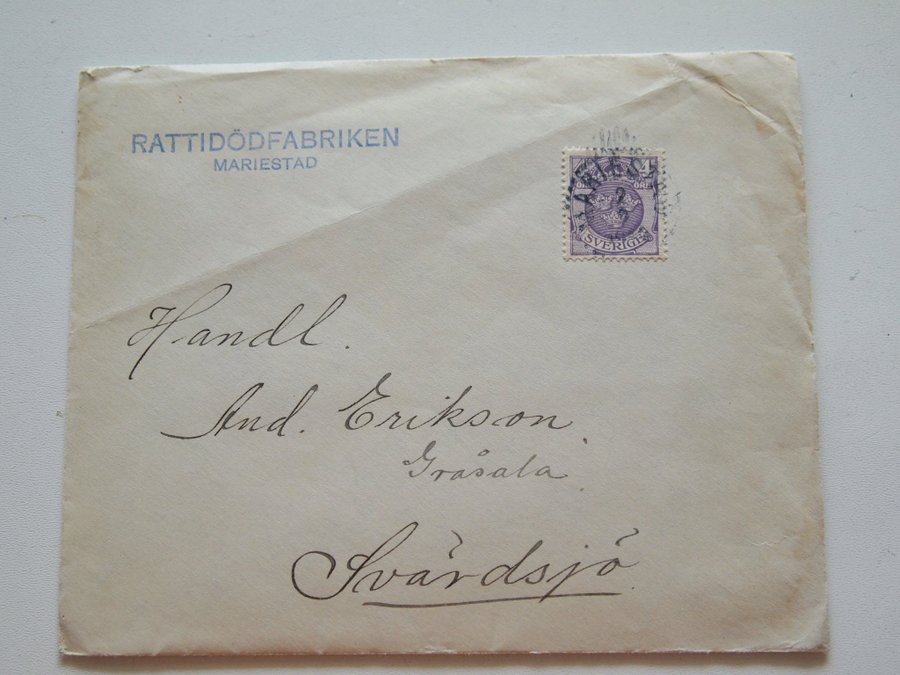 RATTIDÖDFABRIKEN
MARIESTAD
4
ÖRE
SVERIGE
Handl.
And. Erikson
Gråsala
Svärdsjö